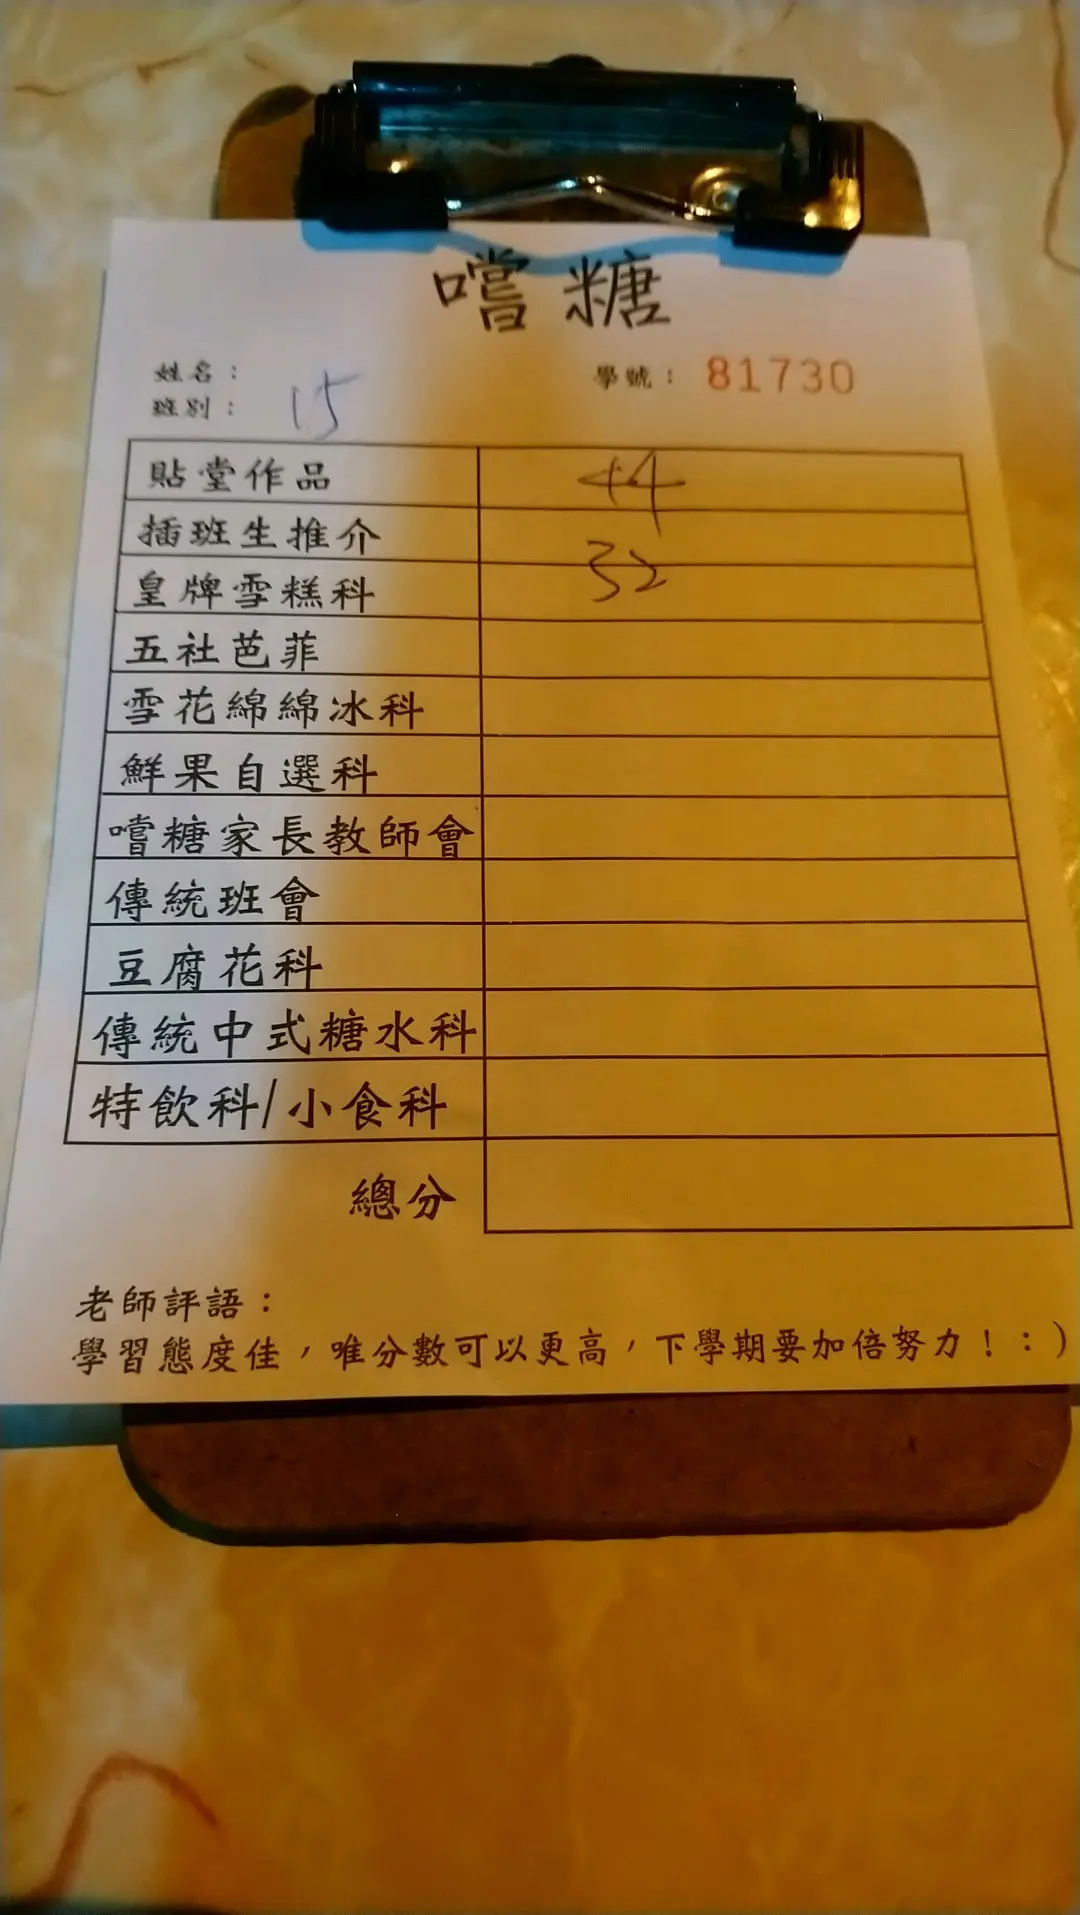 嚐糖
姓名：
學號： 81730
班別： 15
貼堂作品 44
插班生推介
皇牌雪糕科 32
五社芭菲
雪花綿綿冰科
鮮果自選科
嚐糖家長教師會
傳統班會
豆腐花科
傳統中式糖水科
特飲科/小食科
總分
老師評語：
學習態度佳，唯分數可以更高，下學期要加倍努力！：)